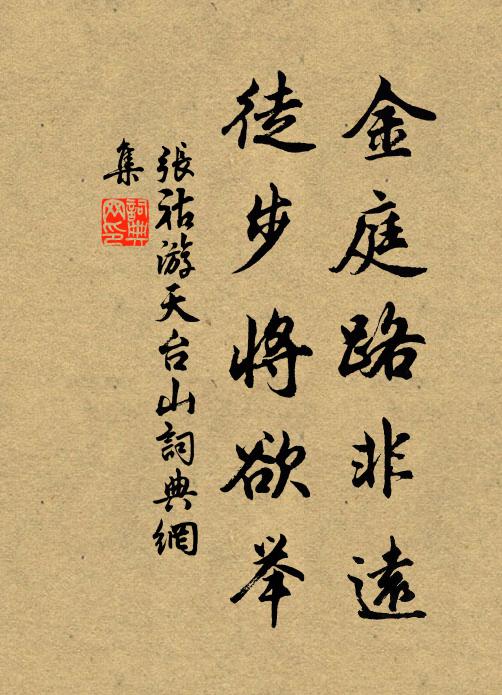 金庭路非遠
徒步将欲举
張祜游天台山詞典網
集
詞典
网印